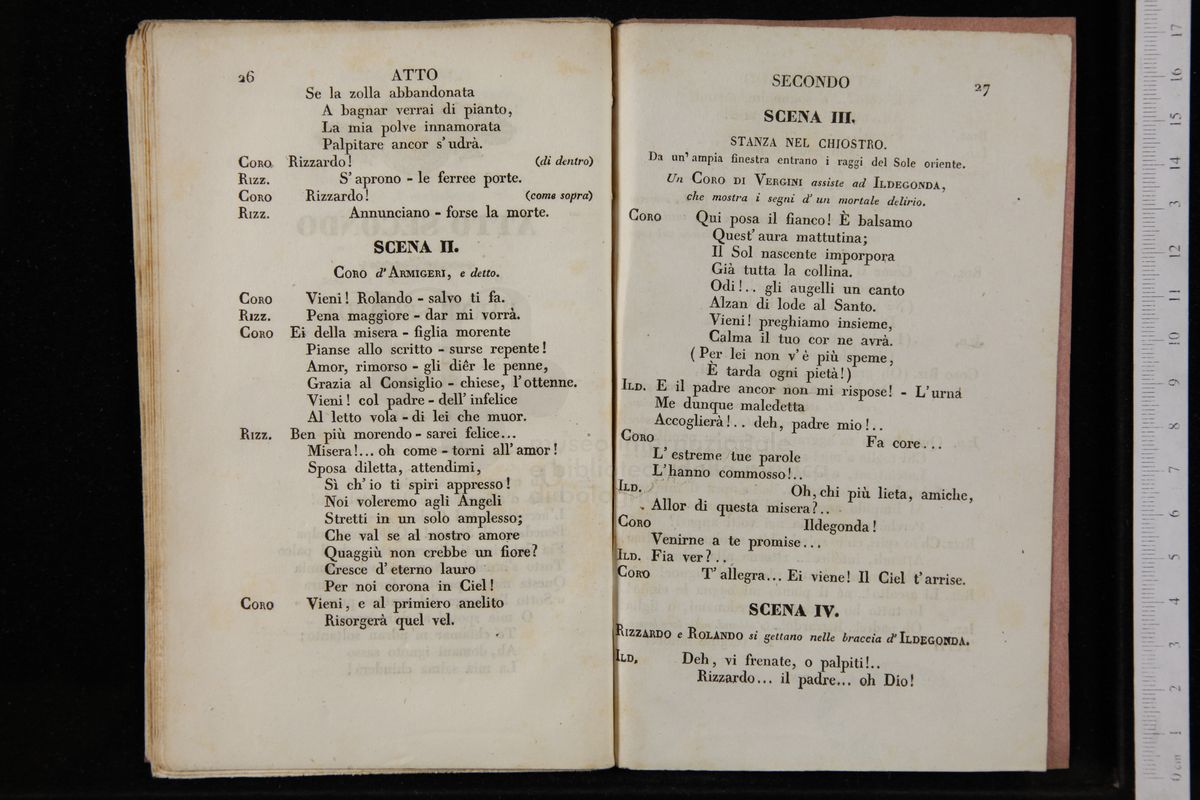 26 ATTO
Se la zolla abbandonata
A bagnar verrai di pianto,
La mia polve innamorata
Palpitare ancor s'udrà.
CORO Rizzardo! (di dentro)
RIZZ. S'aprono - le ferree porte.
CORO Rizzardo! (come sopra)
RIZZ. Annunciano - forse la morte.
SCENA II.
CORO d'ARMIGERI, e detto.
CORO Vieni! Rolando - salvo ti fa.
RIZZ. Pena maggiore - dar mi vorrà.
CORO Ei della misera - figlia morente
Pianse allo scritto - surse repente!
Amor, rimorso - gli diêr le penne,
Grazia al Consiglio - chiese, l'ottenne.
Vieni! col padre - dell'infelice
Al letto vola - di lei che muor.
RIZZ. Ben più morendo - sarei felice...
Misera!... oh come - torni all'amor!
Sposa diletta, attendimi,
Sì ch'io ti spiri appresso!
Noi voleremo agli Angeli
Stretti in un solo amplesso;
Che val se al nostro amore
Quaggiù non crebbe un fiore?
Cresce d'eterno lauro
Per noi corona in Ciel!
CORO Vieni, e al primiero anelito
Risorgerà quel vel.
SECONDO 27
SCENA III.
STANZA NEL CHIOSTRO.
Da un'ampia finestra entrano i raggi del Sole oriente.
Un CORO DI VERGINI assiste ad ILDEGONDA,
che mostra i segni d'un mortale delirio.
CORO Qui posa il fianco! È balsamo
Quest'aura mattutina;
Il Sol nascente imporpora
Già tutta la collina.
Odi!.. gli augelli un canto
Alzan di lode al Santo.
Vieni! preghiamo insieme,
Calma il tuo cor ne avrà.
(Per lei non v'è più speme,
È tarda ogni pietà!)
ILD. E il padre ancor non mi rispose! - L'urna
Me dunque maledetta
Accoglierà!.. deh, padre mio!..
CORO Fa core...
L'estreme tue parole
L'hanno commosso!..
ILD. Oh, chi più lieta, amiche,
Allor di questa misera?..
CORO Ildegonda!
Venirne a te promise...
ILD. Fia ver?..
CORO T'allegra... Ei viene! Il Ciel t'arrise.
SCENA IV.
RIZZARDO e ROLANDO si gettano nelle braccia d'ILDEGONDA.
ILD. Deh, vi frenate, o palpiti!..
Rizzardo... il padre... oh Dio!
0 cm 1 2 3 4 5 6 7 8 9 10 11 12 13 14 15 16 17